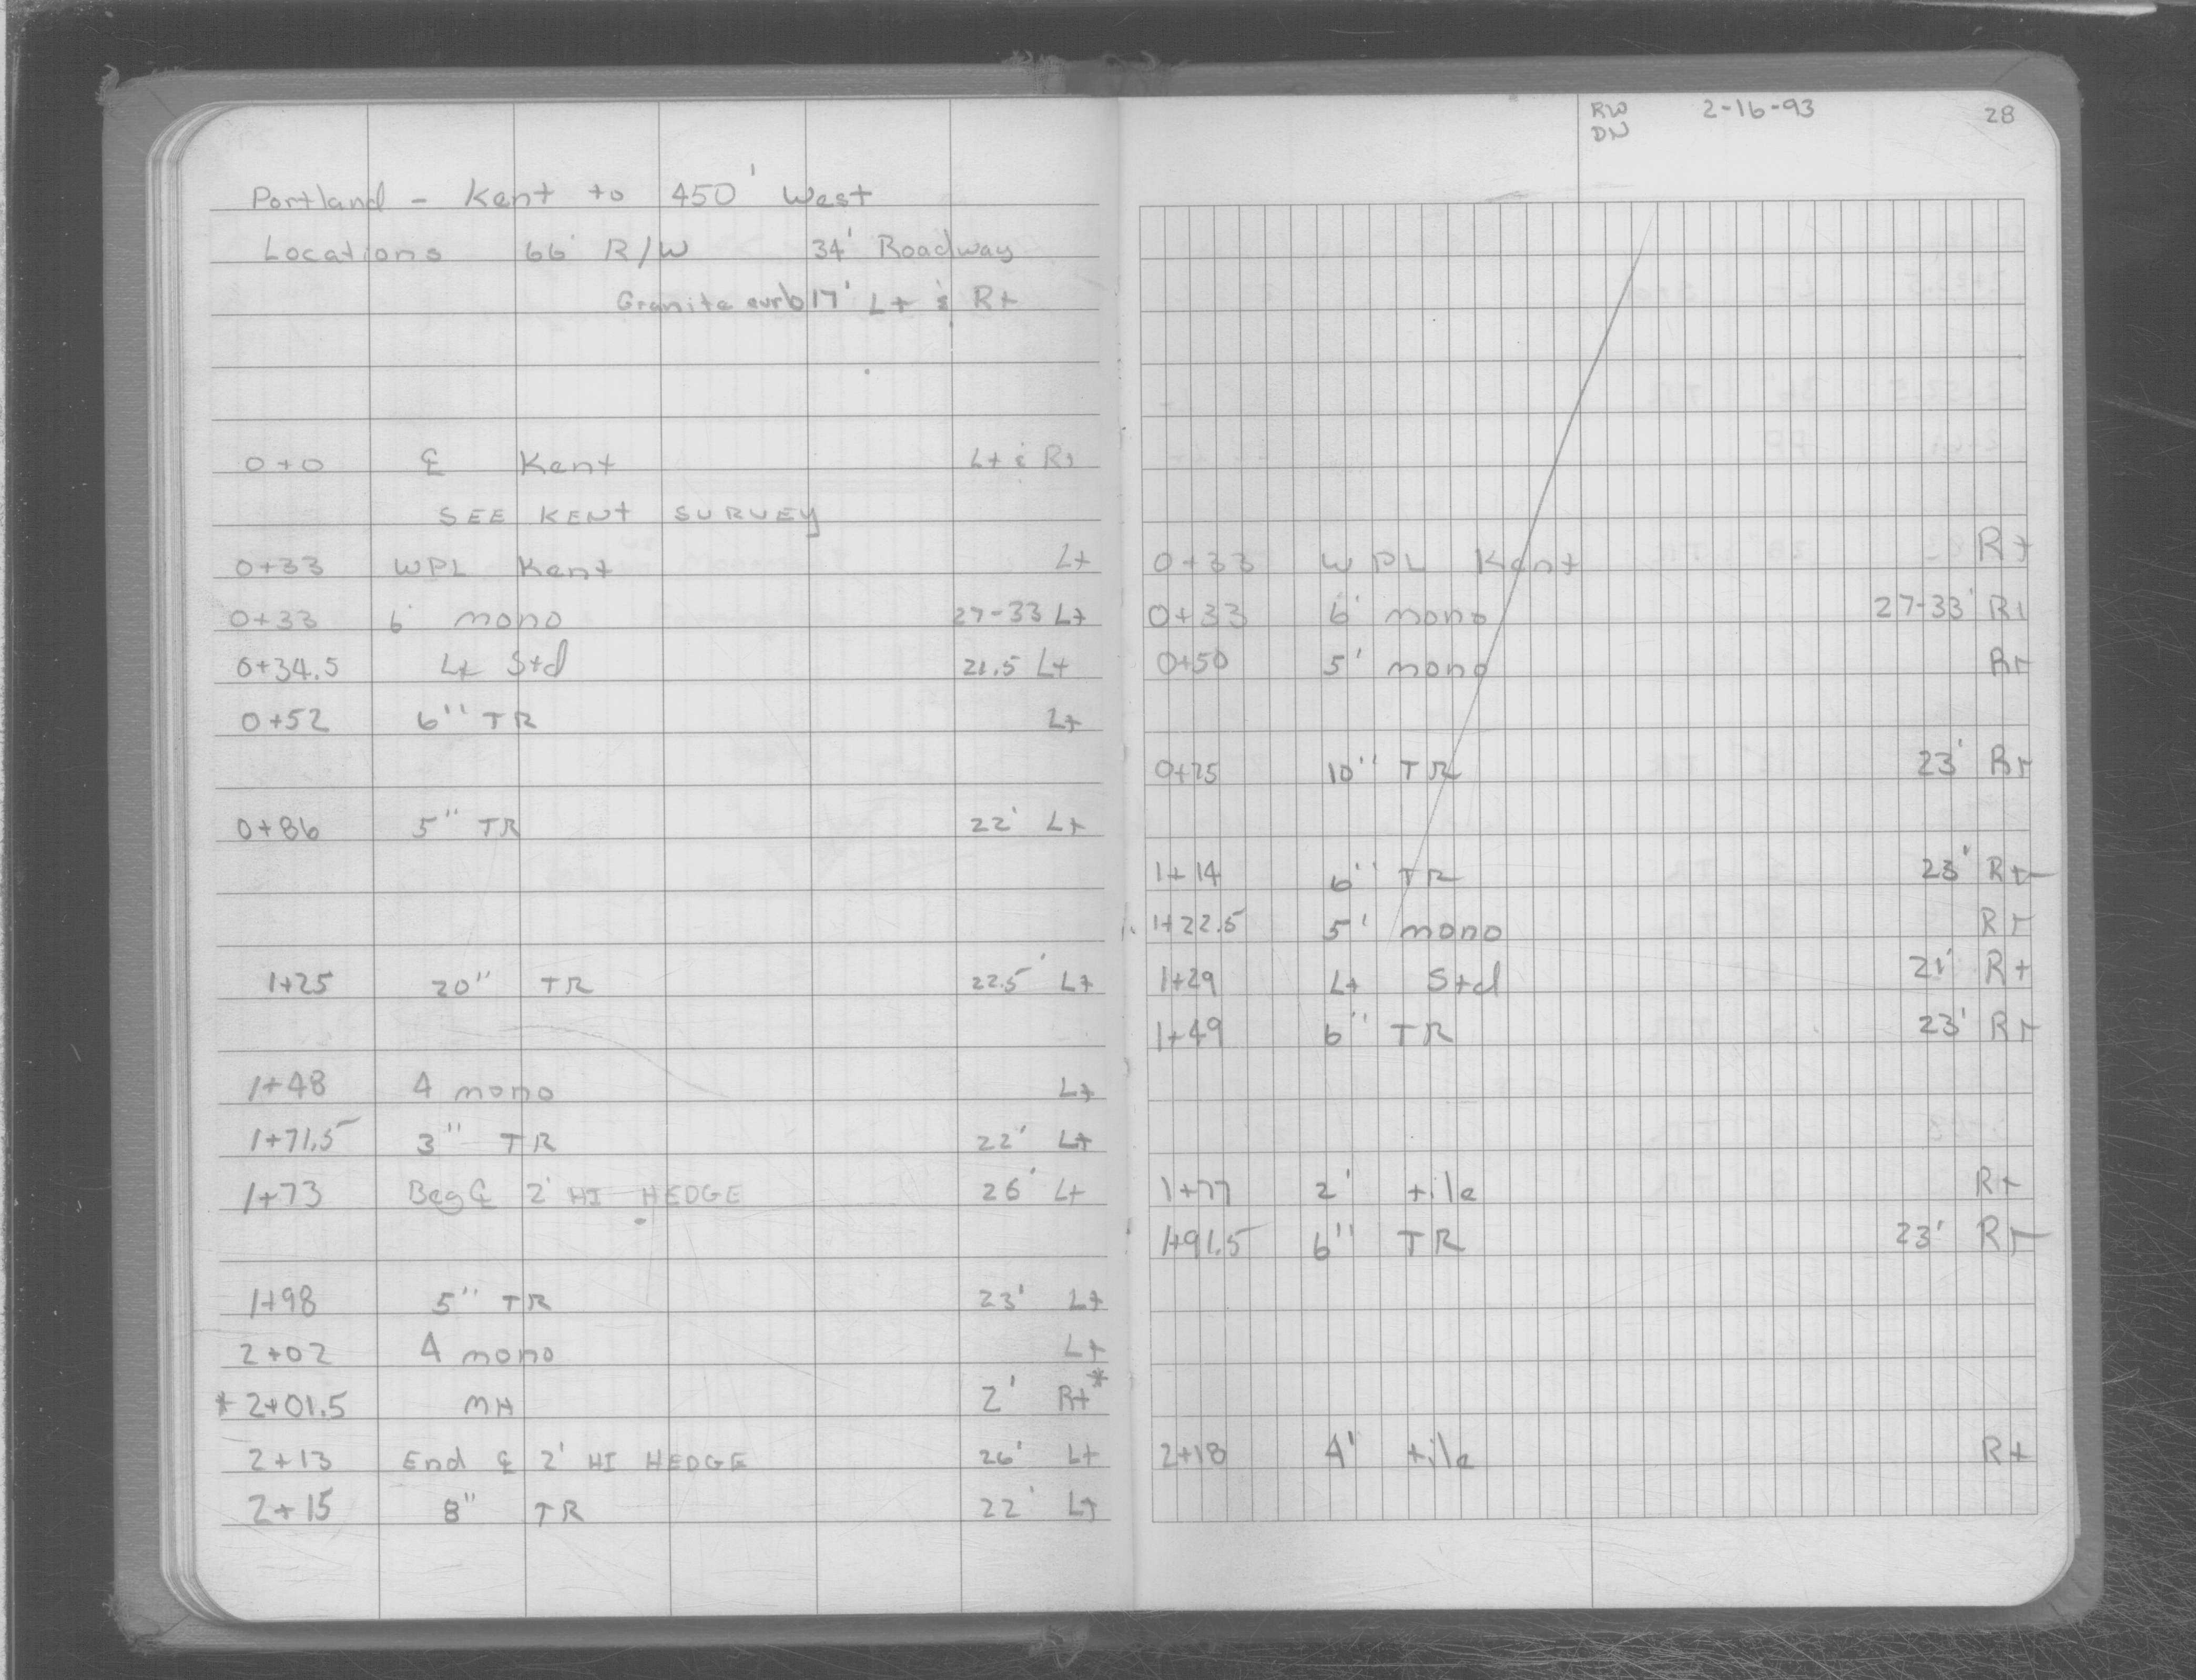 Portland - Kent to 450' West
Locations 66' R/W 34' Roadway
Granite curb 17' Lt & Rt
0+0 ℄ Kent Lt & Rt
SEE KENT SURVEY
0+33 WPL Kent Lt
0+33 6' mono 27-33 Lt
0+34.5 Lt Std 21.5 Lt
0+52 6" TR Lt
0+86 5" TR 22' Lt
1+25 20" TR 22.5' Lt
1+48 4 mono Lt
1+71.5 3" TR 22' Lt
1+73 Beg ℄ 2' HI HEDGE 26' Lt
1+98 5" TR 23' Lt
2+02 4 mono Lt
* 2+01.5 MH 2' Rt *
2+13 End ℄ 2' HI HEDGE 26' Lt
2+15 8" TR 22' Lt
RW 2-16-93 28
DN
0+33 WPL Kent Rt
0+33 6' mono 27-33' Rt
0+50 5' mono Rt
0+75 10" TR 23' Rt
1+14 6" TR 23' Rt
1+22.5 5' mono Rt
1+29 Lt Std 21' Rt
1+49 6" TR 23' Rt
1+77 2' tile Rt
1+91.5 6" TR 23' Rt
2+18 4' tile Rt